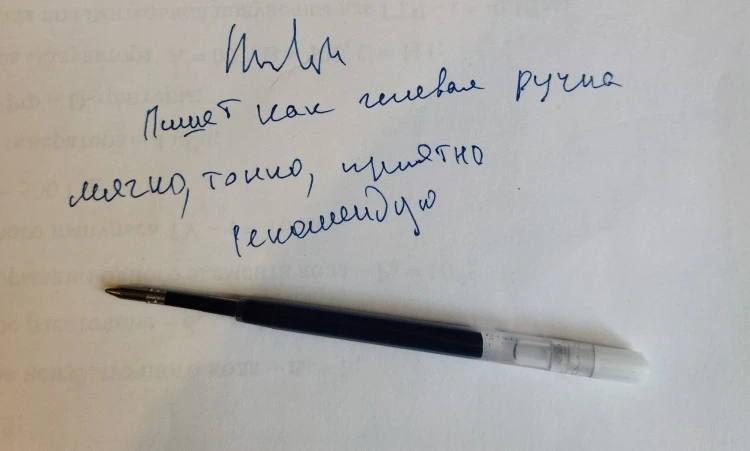 Пишет как гелевая ручка
мягко, тонко, приятно
рекомендую